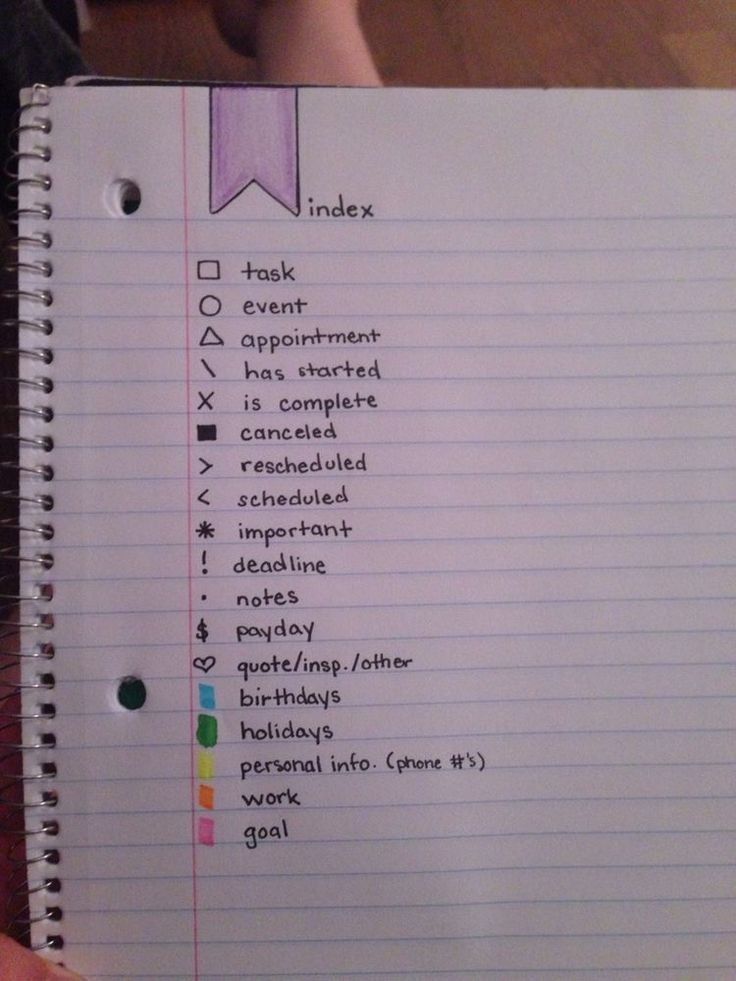 index
□ task
○ event
△ appointment
\ has started
X is complete
■ canceled
> rescheduled
< scheduled
* important
! deadline
· notes
$ payday
♡ quote/insp./other
birthdays
holidays
personal info. (phone #'s)
work
goal